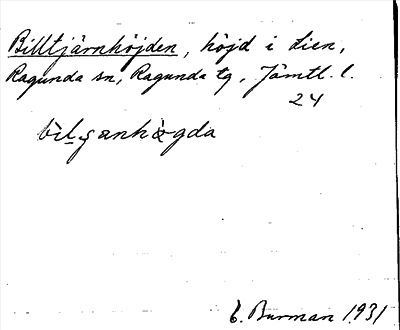 Billtjärnhöjden, höjd i Lien,
Ragunda sn, Ragunda tg, Jämtl. l.
24
E. Burman 1931